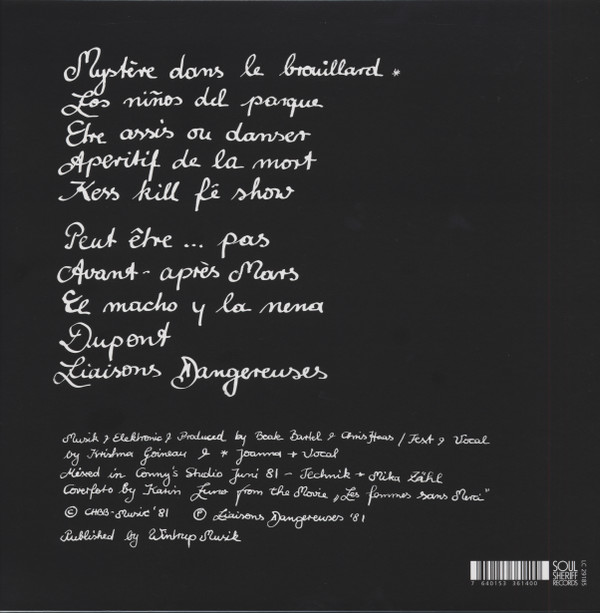 Mystère dans le brouillard *
Los niños del parque
Etre assis ou danser
Aperitif de la mort
Kess kill fê show
Peut être ... pas
Avant-après Mars
El macho y la nena
Dupont
Liaisons Dangereuses
Musik & Elektronic & Produced by Beate Bartel & Chris Haas / Text & Vocal
by Krishna Goineau & * Joanna + Vocal
Mixed in Conny's Studio Juni 81 - Technik + Mika Zähl
Coverfoto by Karin from the Movie „Les femmes sans Merci"
© CHBB-Music '81 ℗ Liaisons Dangereuses '81
Published by Wintrup Musik
7 640153 361400
SOUL
SHERIFF
RECORDS
LC 29185